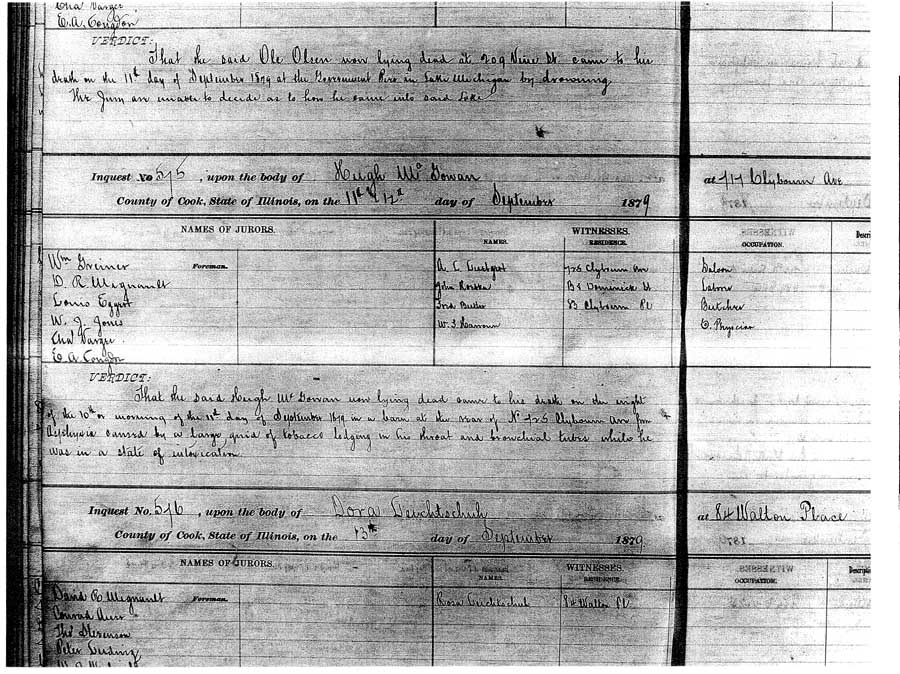 Cha Varges
E. A. Congdon
VERDICT:
That the said Ole Olsen now lying dead at 209 Vine St. came to his
death on the 11th day of September 1879 at the Government Pier in Lake Michigan by drowning
The Jury are unable to decide as to how he came into said Lake
Inquest No 575, upon the body of Hugh Mc Gowan at 717 Clybourn Ave
County of Cook, State of Illinois, on the 11th & 12th day of September 1879
NAMES OF JURORS. WITNESSES.
NAMES. RESIDENCE. OCCUPATION.
Wm Greiner Foreman. A. L. 725 Clybourn Ave Saloon
D. R. Mignault John Domenick St Laborer
Louis Eggert Butler Clybourn Pl Butcher
W. J. Jones W. S. Physician
Cha Varges
E A Congdon
VERDICT:
That the said Hugh Mc Gowan now lying dead came to his death on the night
of the 10th or morning of the 11th day of September 1879 in a barn at the rear of No 725 Clybourn Ave from
caused by a large quid of tobacco lodging in his throat and bronchial tubes while he
was in a state of intoxication.
Inquest No. 576, upon the body of Dora Teichtschuh at 84 Walton Place
County of Cook, State of Illinois, on the 13th day of September 1879
NAMES OF JURORS. WITNESSES.
NAMES. RESIDENCE. OCCUPATION.
David R. Mignault Foreman. Rosa Teichtschuh 84 Walton Pl
Conrad
Thos Stevenson
Peter